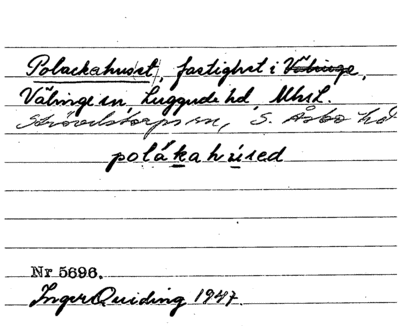 Polackahuset, fastighet i Välinge,
Välinge sn, Luggude hd, Mhsl.
Strövelstorps sn, S. Åsbo hd
polákahúsed
Nr 5696.
Inger Quiding 1947.